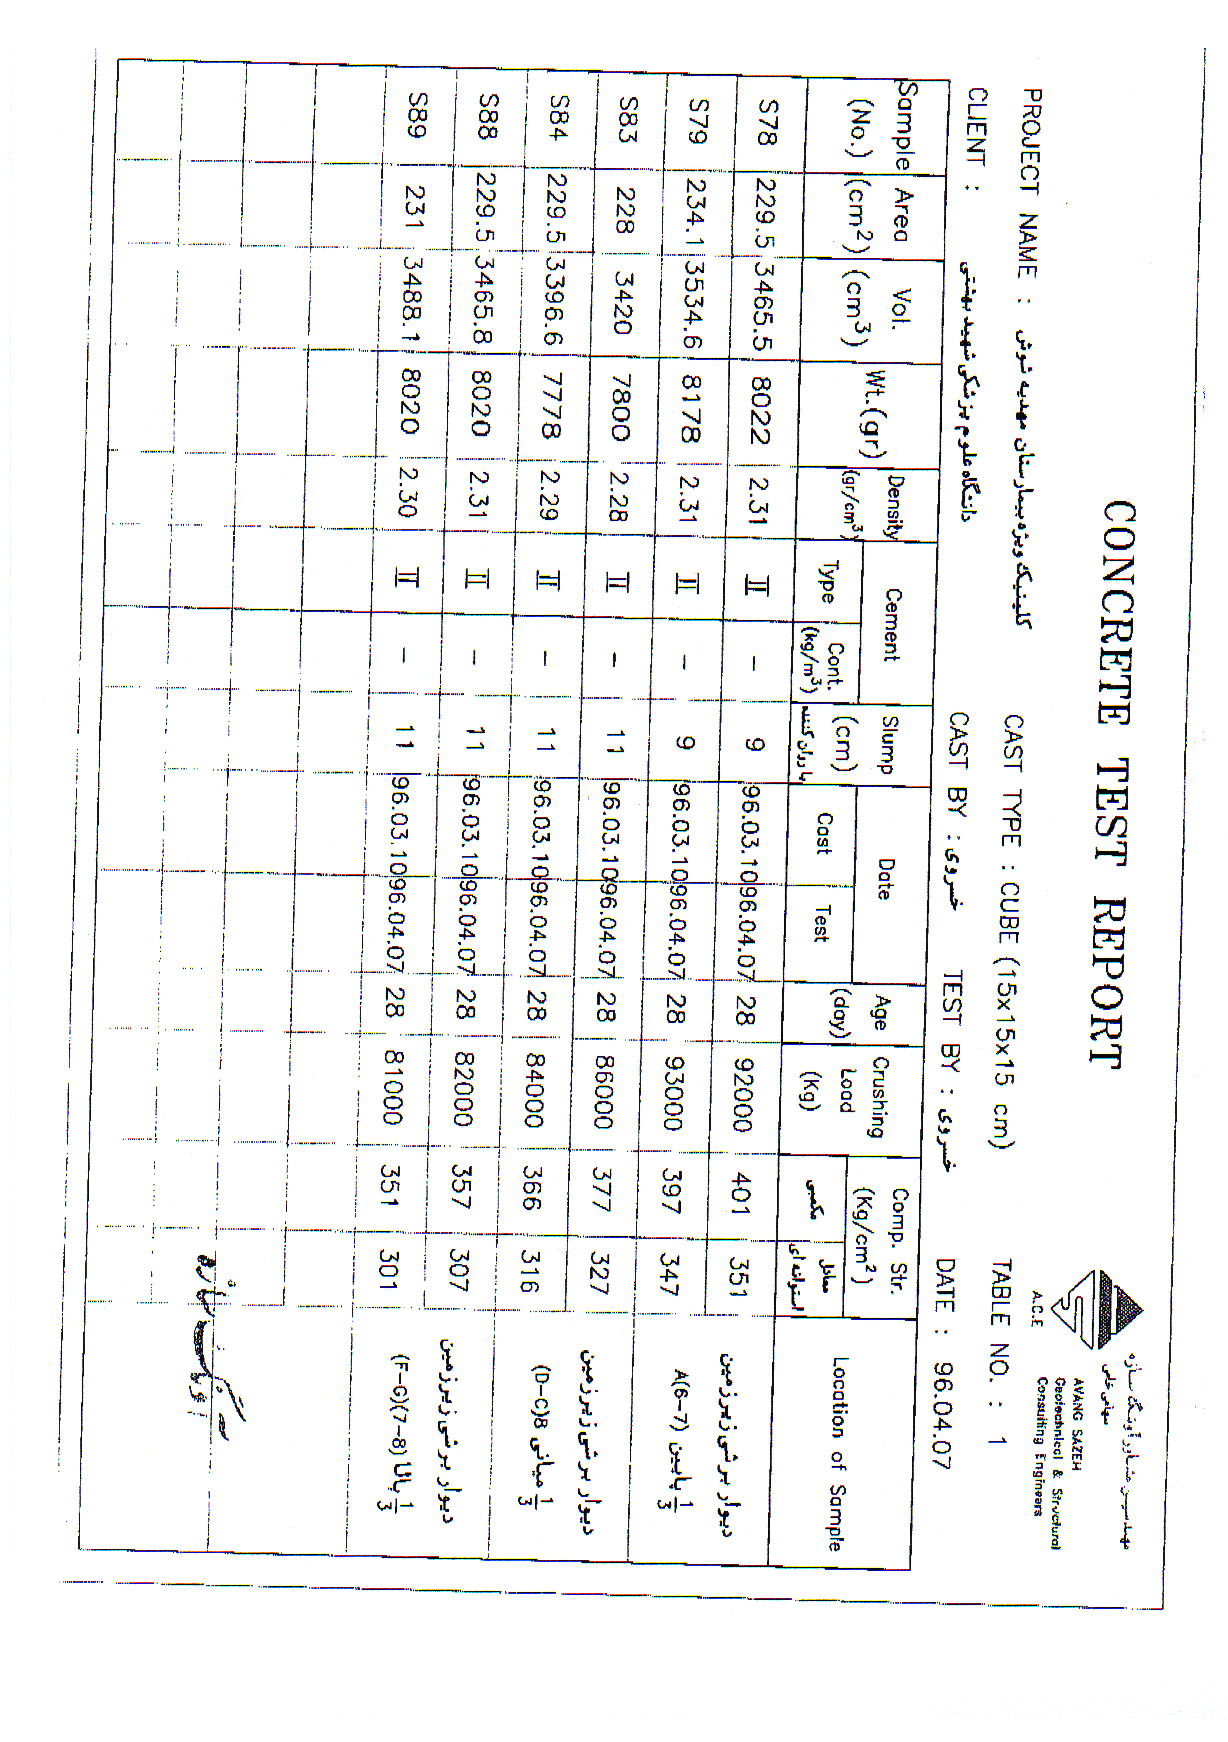 CONCRETE TEST REPORT
مهندسین مشاور آوَنگ سازه
سهامی خاص
AVANG SAZEH
Geotechnical & Structural
Consulting Engineers
A.C.E
PROJECT NAME : کلینیک ویژه بیمارستان مهدیه شوش CAST TYPE : CUBE (15x15x15 cm) TABLE NO. : 1
CLIENT : دانشگاه علوم پزشکی شهید بهشتی CAST BY : خسروی TEST BY : خسروی DATE : 96.04.07
Sample (No.) Area (cm2) Vol. (cm3) Wt.(gr) Density (gr/cm3) Cement Type Cont. (kg/m3) Slump (cm) با روان کننده Date Cast Test Age (day) Crushing Load (Kg) Comp. Str. (Kg/cm2) مکعبی معادل استوانه ای Location of Sample
S78 229.5 3465.5 8022 2.31 II - 9 96.03.10 96.04.07 28 92000 401 351 دیوار برشی زیرزمین
S79 234.1 3534.6 8178 2.31 II - 9 96.03.10 96.04.07 28 93000 397 347 1/3 پایین A(6-7)
S83 228 3420 7800 2.28 II - 11 96.03.10 96.04.07 28 86000 377 327 دیوار برشی زیرزمین
S84 229.5 3396.6 7778 2.29 II - 11 96.03.10 96.04.07 28 84000 366 316 1/3 میانی (D-C)8
S88 229.5 3465.8 8020 2.31 II - 11 96.03.10 96.04.07 28 82000 357 307 دیوار برشی زیرزمین
S89 231 3488.1 8020 2.30 II - 11 96.03.10 96.04.07 28 81000 351 301 1/3 بالا (F-G)(7-8)